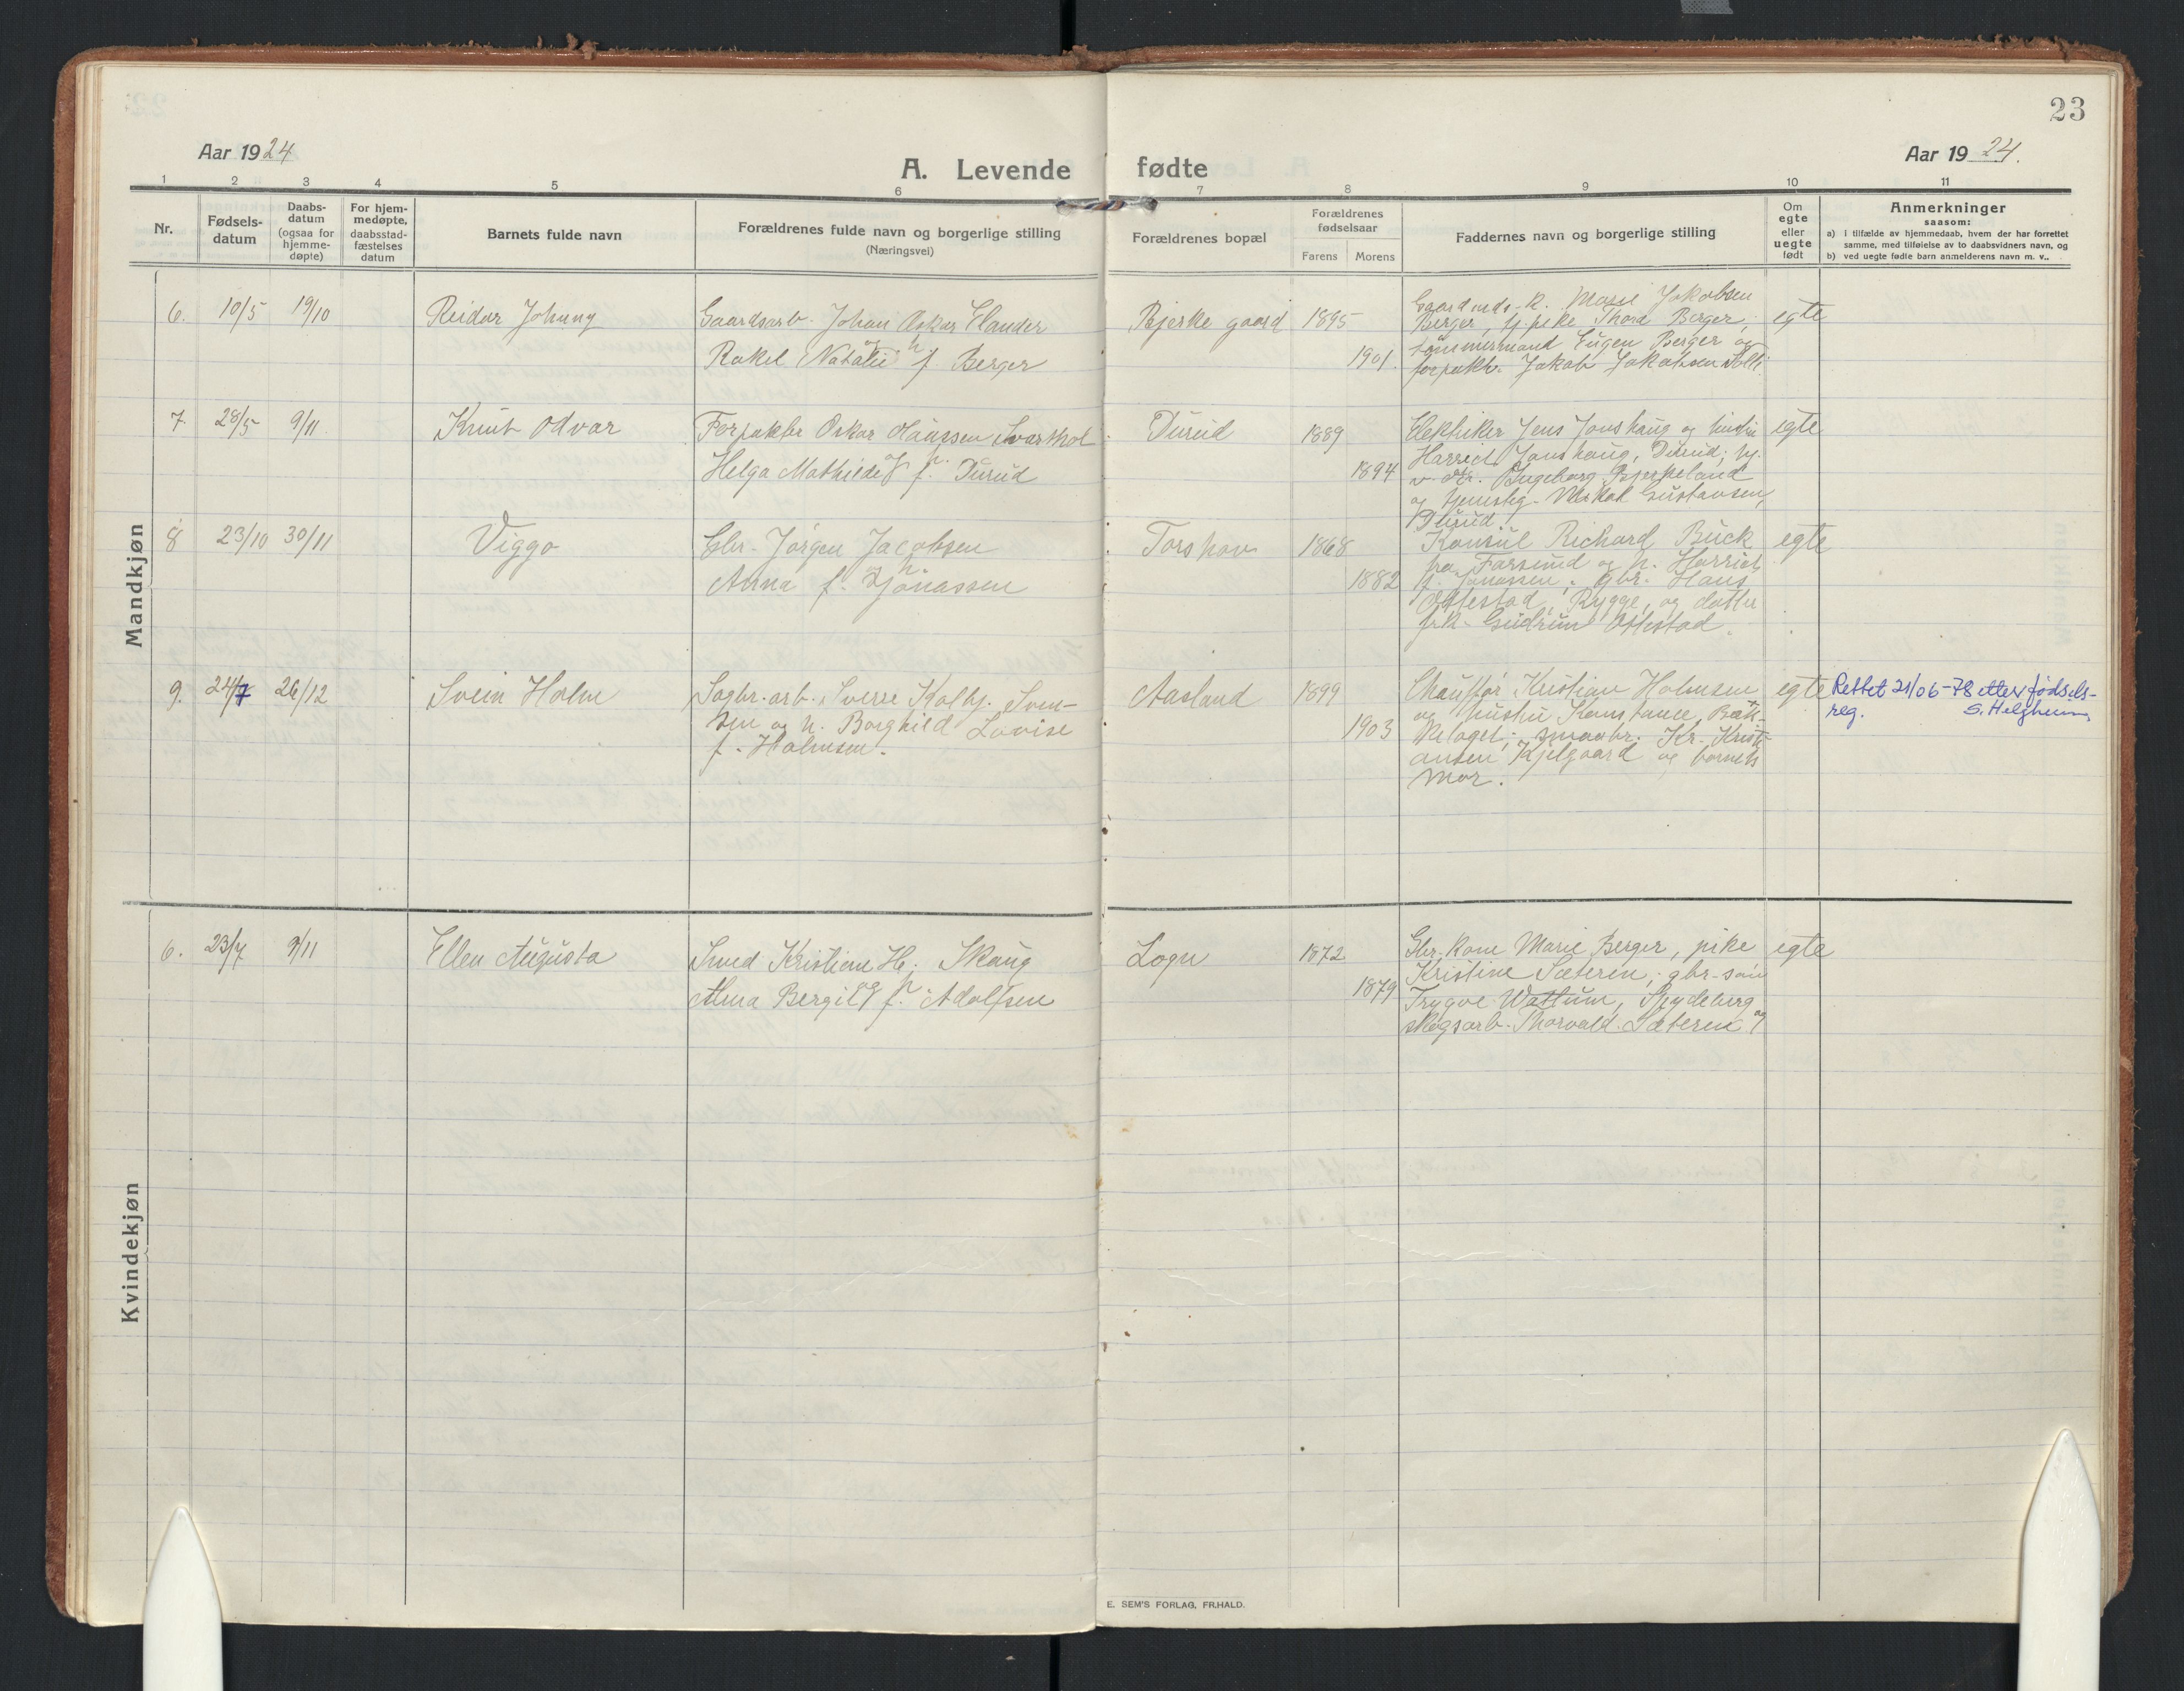 23
Aar 1924
A. Levende fødte
Aar 1924.
1 2 3 4 5 6 7 8 9 10 11
Nr.
Fødsels-
datum
Daabs-
datum
(ogsaa for
hjemme-
døpte)
For hjem-
medøpte,
daabsstad-
fæstelses
datum
Barnets fulde navn
Forældrenes fulde navn og borgerlige stilling
(Næringsvei)
Forældrenes bopæl
Forældrenes
fødselsaar
Farens Morens
Faddernes navn og borgerlige stilling
Om
egte
eller
uegte
født
Anmerkninger
saasom:
a) i tilfælde av hjemmedaab, hvem der har forrettet
samme, med tilføielse av to daabsvidners navn, og
b) ved uegte fødte barn anmelderens navn m. v..
Mandkjøn
6. 10/5 19/10
Reidar Johnny
Gaardsarb. Johan Oskar Elander
og h.
Rakel Natalie f. Berger
Bjerke gaard
1895
1901.
Gaardmds-k. Marie Jakobsen
Berger, pike Thora Berger,
tömmermand Eugen Berger og
forpakt. Jakob Jakobsen Solli
egte
7 28/5 9/11
Knut Odvar
Forpakter Oskar Hanssen Svarthol
og h.
Helga Mathilde f. Durud
Durud
1889
1894
Elektriker Jens Jonshaug og hustru
Harriet Jonshaug, Durud;
Ingeborg Bjerkeland
og Gustavsen,
Durud
egte
8 23/10 30/11
Viggo
Gbr. Jörgen Jacobsen
og h.
Anna f. Jonassen
Torshov
1868
1882
Konsul Richard Buck
fra Farsund og h. Harriet
f. Jonassen; gbr. Hans
Ottestad, Rygge, og datter
frk. Gudrun Ottestad.
egte
9. 24/7 26/12
Svein Holm
Sagbr. arb. Sverre Kolbj. Sven-
sen og h. Borghild Lovise
f. Holmsen.
Aasland
1899
1903
Chauffør Kristian Holmsen
og hustru Konstance, Bæk-
kelaget; smaabr. Kr. Kristi-
ansen Kjelgaard og barnets
mor.
egte
Rettet 21/06-78 etter fødsels-
reg. S. Helgheim
Kvindekjøn
6. 23/7 9/11
Ellen Augusta
Smed Kristian H. Skaug
og h.
Alma Bergit f. Adolfsen
Logn
1872
1879
Gbr. kone Marie Berger, pike
Kristine Sæteren; gbr-søn
Trygve Wattum, Spydeberg og
skogsarb. Thorvald Sæteren
egte
E. SEM'S FORLAG, FR.HALD.